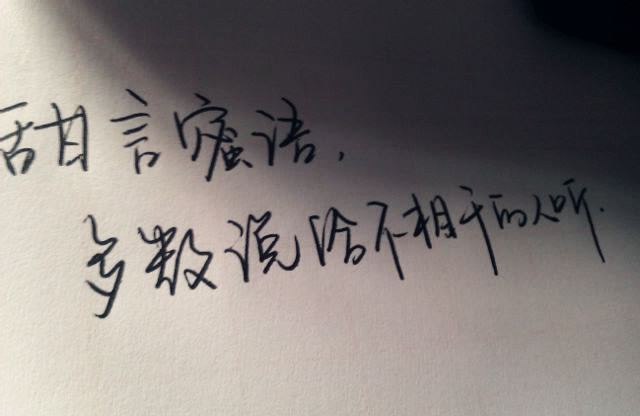 甜言蜜语,
多数说给不相干的人听.